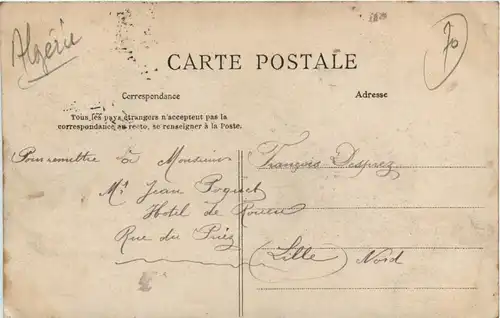 Algérie
70
CARTE POSTALE
Correspondance
Adresse
Tous les pays étrangers n'acceptent pas la
correspondance au recto, se renseigner à la Poste.
Pour remettre à Monsieur
François Desprez
Mr Jean Poquet
Hotel de Rouen
Rue du Priez
Lille Nord